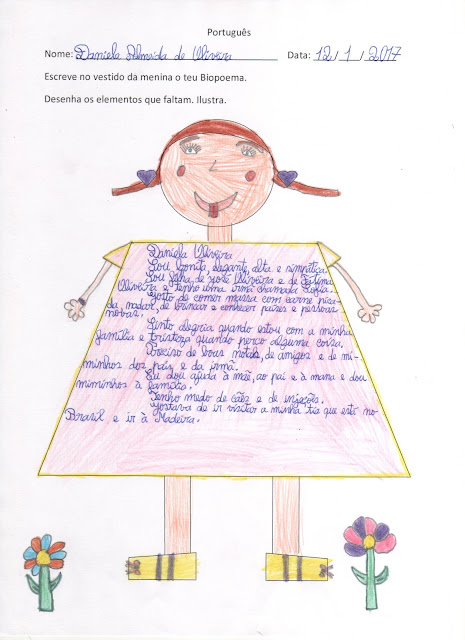 Português
Nome: Daniela Almeida de Oliveira Data: 12/1/2017
Escreve no vestido da menina o teu Biopoema.
Desenha os elementos que faltam. Ilustra.
Daniela Oliveira
Sou bonita, elegante, alta e simpática.
Sou filha de José Oliveira e de Fátima
Oliveira e tenho uma irmã chamada Sofia.
Gosto de comer massa com carne pica-
da, nadar, de brincar e conhecer países e pessoas
novas.
Sinto alegria quando estou com a minha
família e tristeza quando perco alguma coisa.
Preciso de boas notas, de amigos e de mi-
minhos dos pais e da irmã.
Eu dou ajuda à mãe, ao pai e à mana e dou
miminhos à família.
Tenho medo de cães e de injeções.
Gostava de ir visitar a minha tia que está no
Brasil e ir à Madeira.